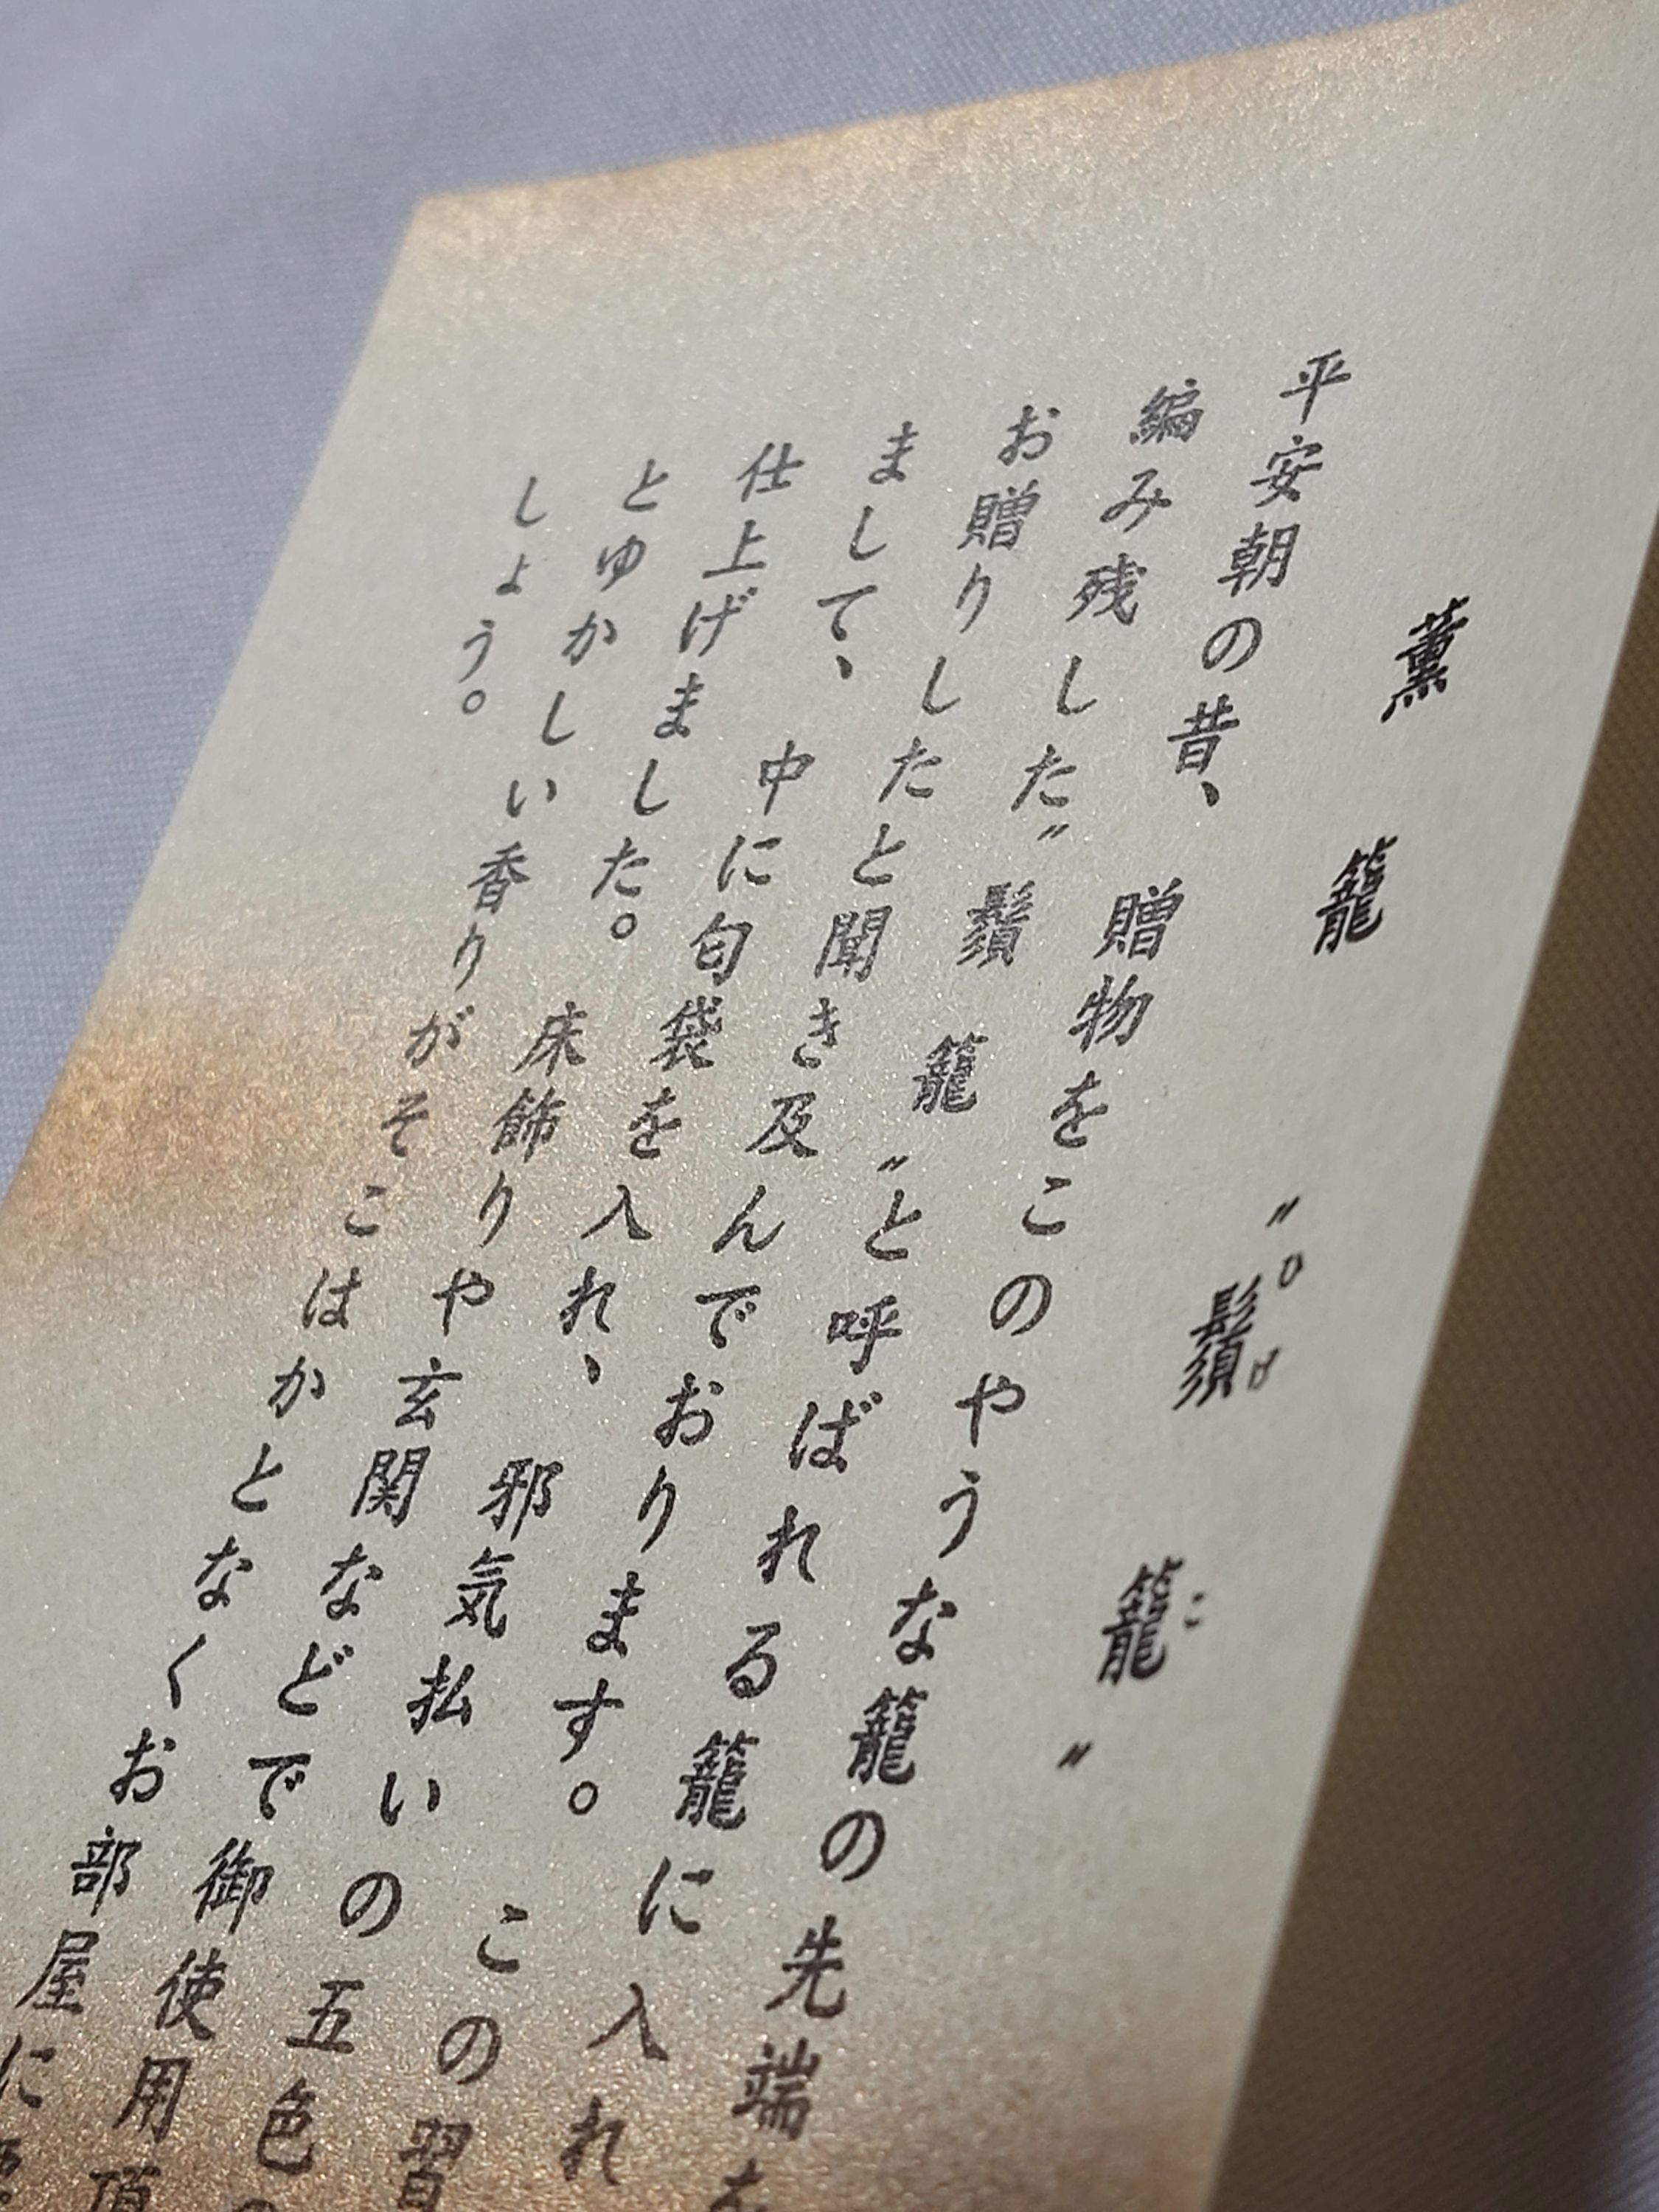 薫籠 〝鬚籠〟
ひげこ
平安朝の昔、贈物をこのやうな籠の先端を
編み残した〝鬚籠〟と呼ばれる籠に入れ
お贈りしたと聞き及んでおります。この習
まして、中に匂袋を入れ、邪気払いの五色の
仕上げました。床飾りや玄関などで御使用頂
とゆかしい香りがそこはかとなくお部屋に
しょう。